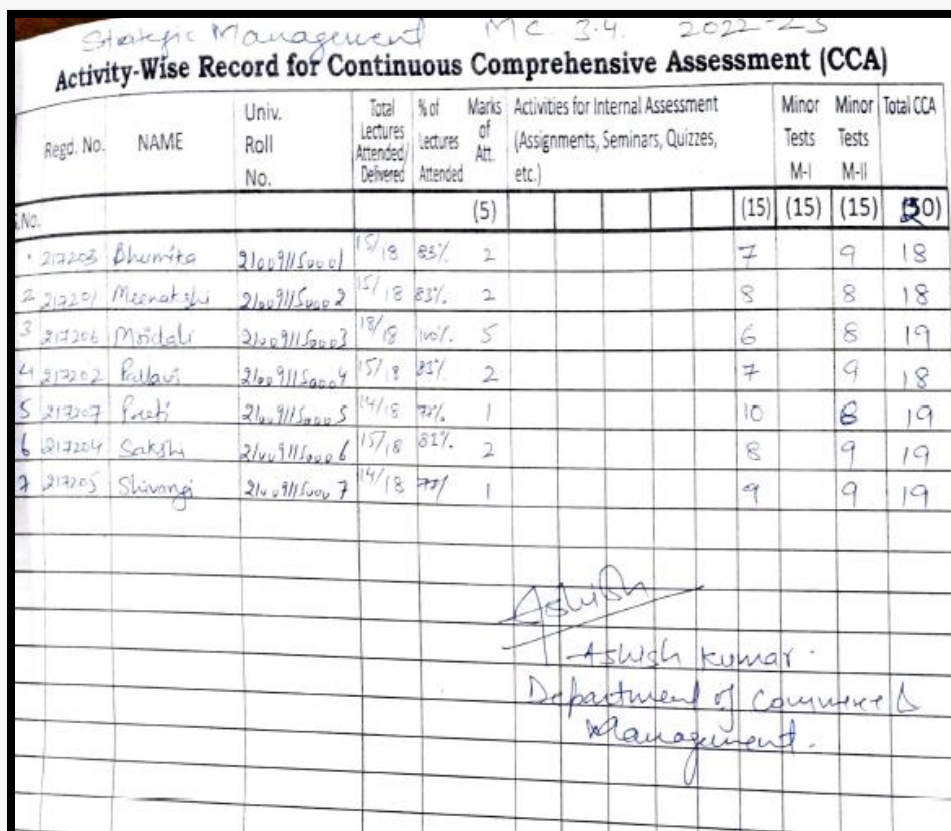 Strategic Management MC 3.4. 2022-23
Activity-Wise Record for Continuous Comprehensive Assessment (CCA)
Regd. No. NAME Univ. Roll No. Total Lectures Attended/ Delivered % of Lectures Attended Marks of Att. Activities for Internal Assessment (Assignments, Seminars, Quizzes, etc.) Minor Tests M-I Minor Tests M-II Total CCA
.No. (5) (15) (15) (15)
217203 Bhumika 210091150001 15/18 83% 2 7 9 18
2 217201 Meenakshi 210091150002 15/18 83% 2 8 8 18
3 217206 210091150003 18/18 100% 5 6 8 19
4 217202 Pallavi 210091150004 15/18 83% 2 7 9 18
5 217207 Preeti 210091150005 14/18 1 10 8 19
6 217204 Sakshi 210091150006 15/18 2 8 9 19
7 217205 Shivangi 210091150007 14/18 1 9 9 19
Ashish
Ashish Kumar.
Department of Commerce &
Management.